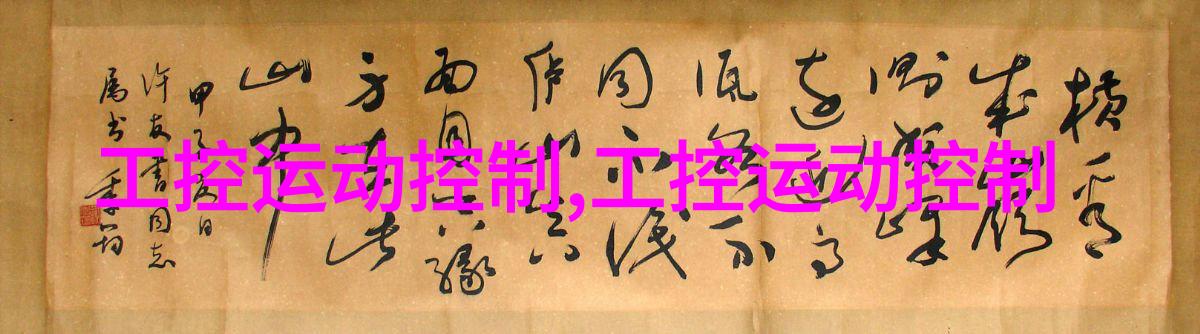 工控运动控制,工控运动控制
横看
成嶺
側成峰
遠近高
低無不
同不識
庐山真
面目只緣
身在此
山中
甲子夏日
许友書同志
属书